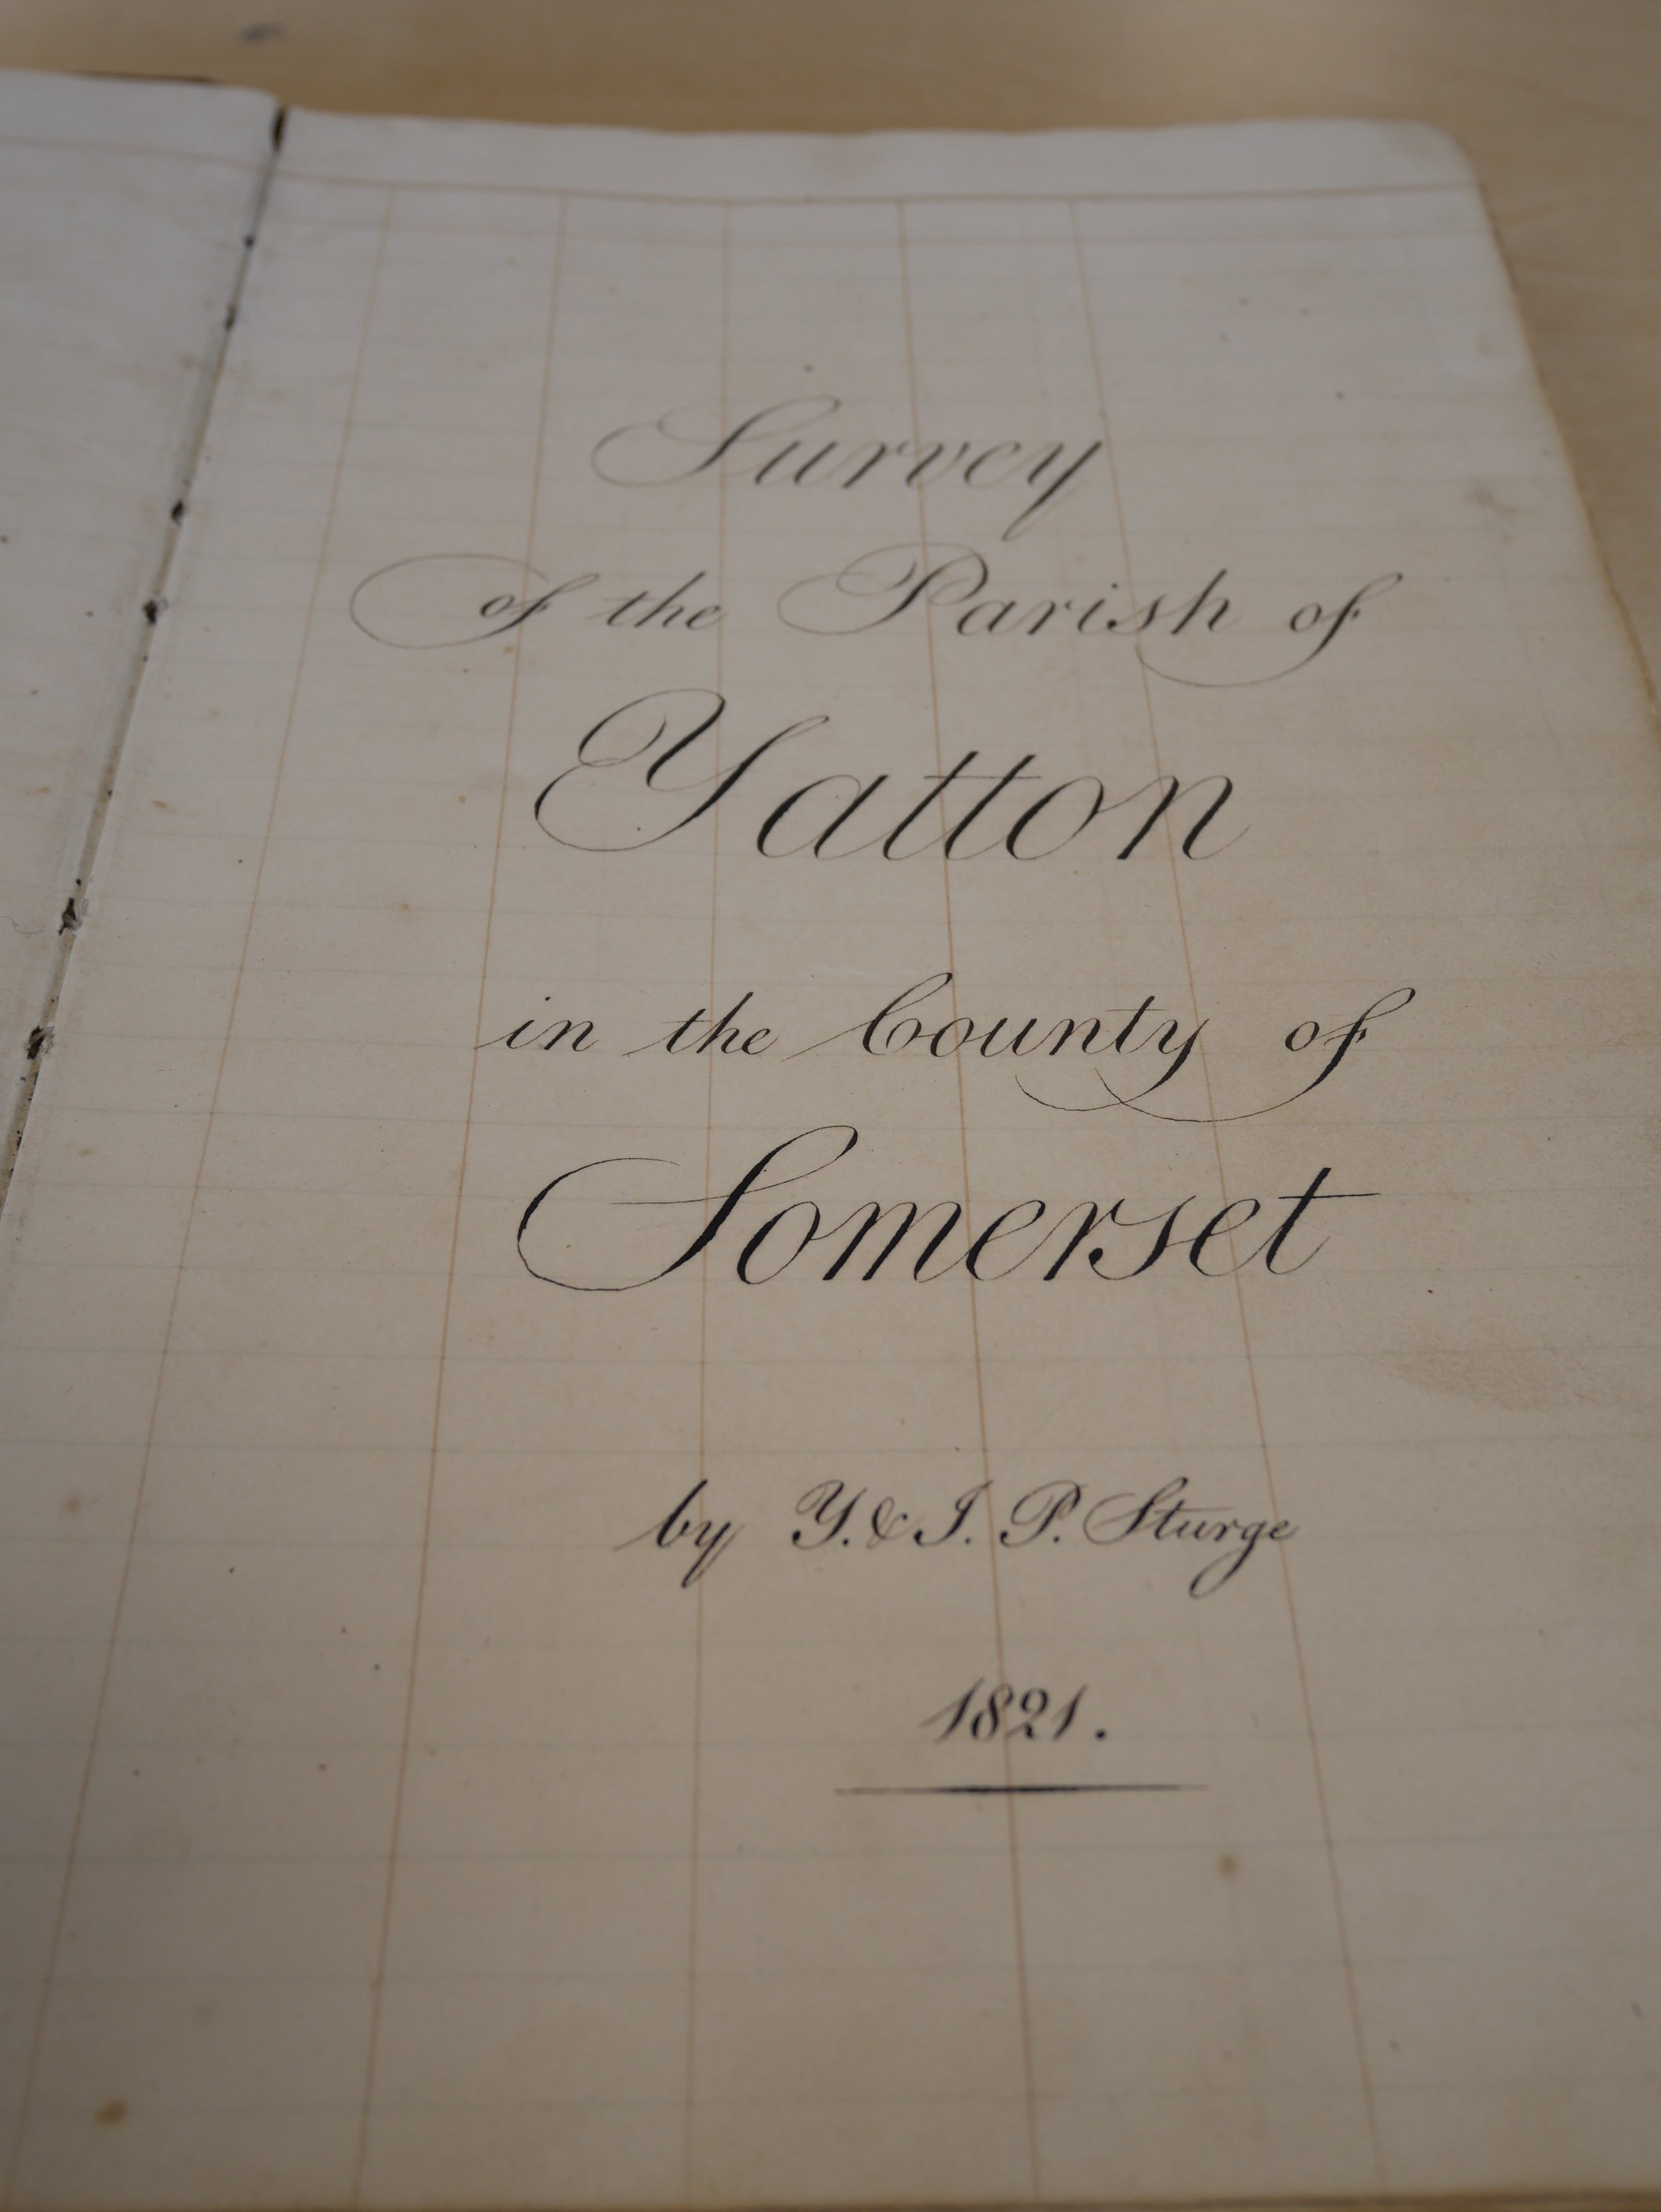 Survey
of the Parish of
Yatton
in the County of
Somerset
by Y. & J. P. Sturge
1821.